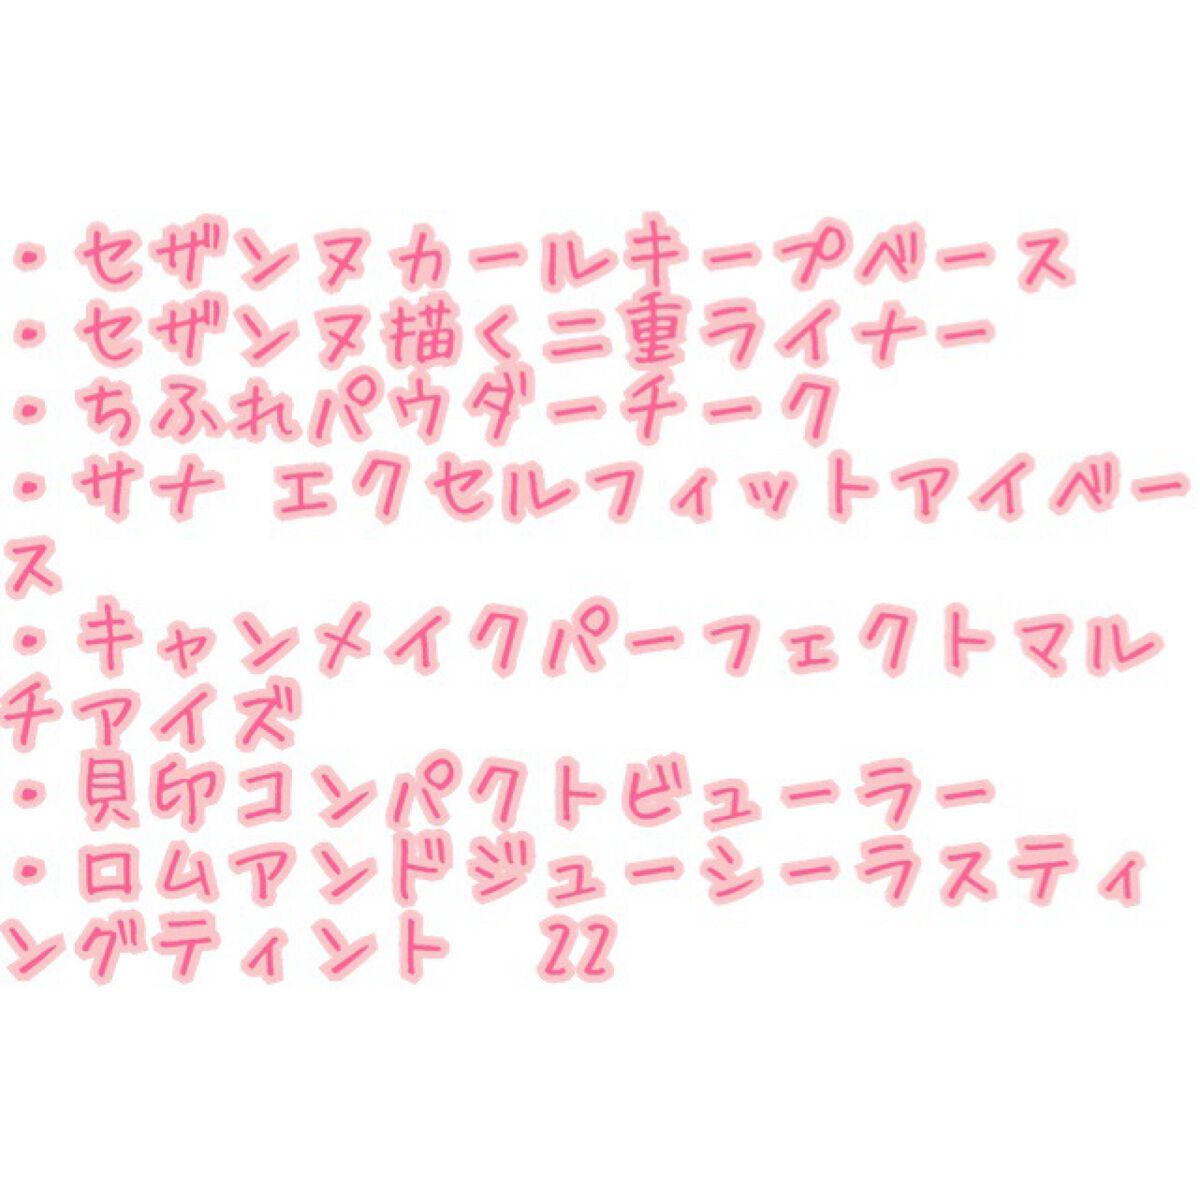 ・セザンヌカールキープベース
・セザンヌ描く二重ライナー
・ちふれパウダーチーク
・サナ エクセルフィットアイベー
ス
・キャンメイクパーフェクトマル
チアイズ
・貝印コンパクトビューラー
・ロムアンドジューシーラスティ
ングティント 22